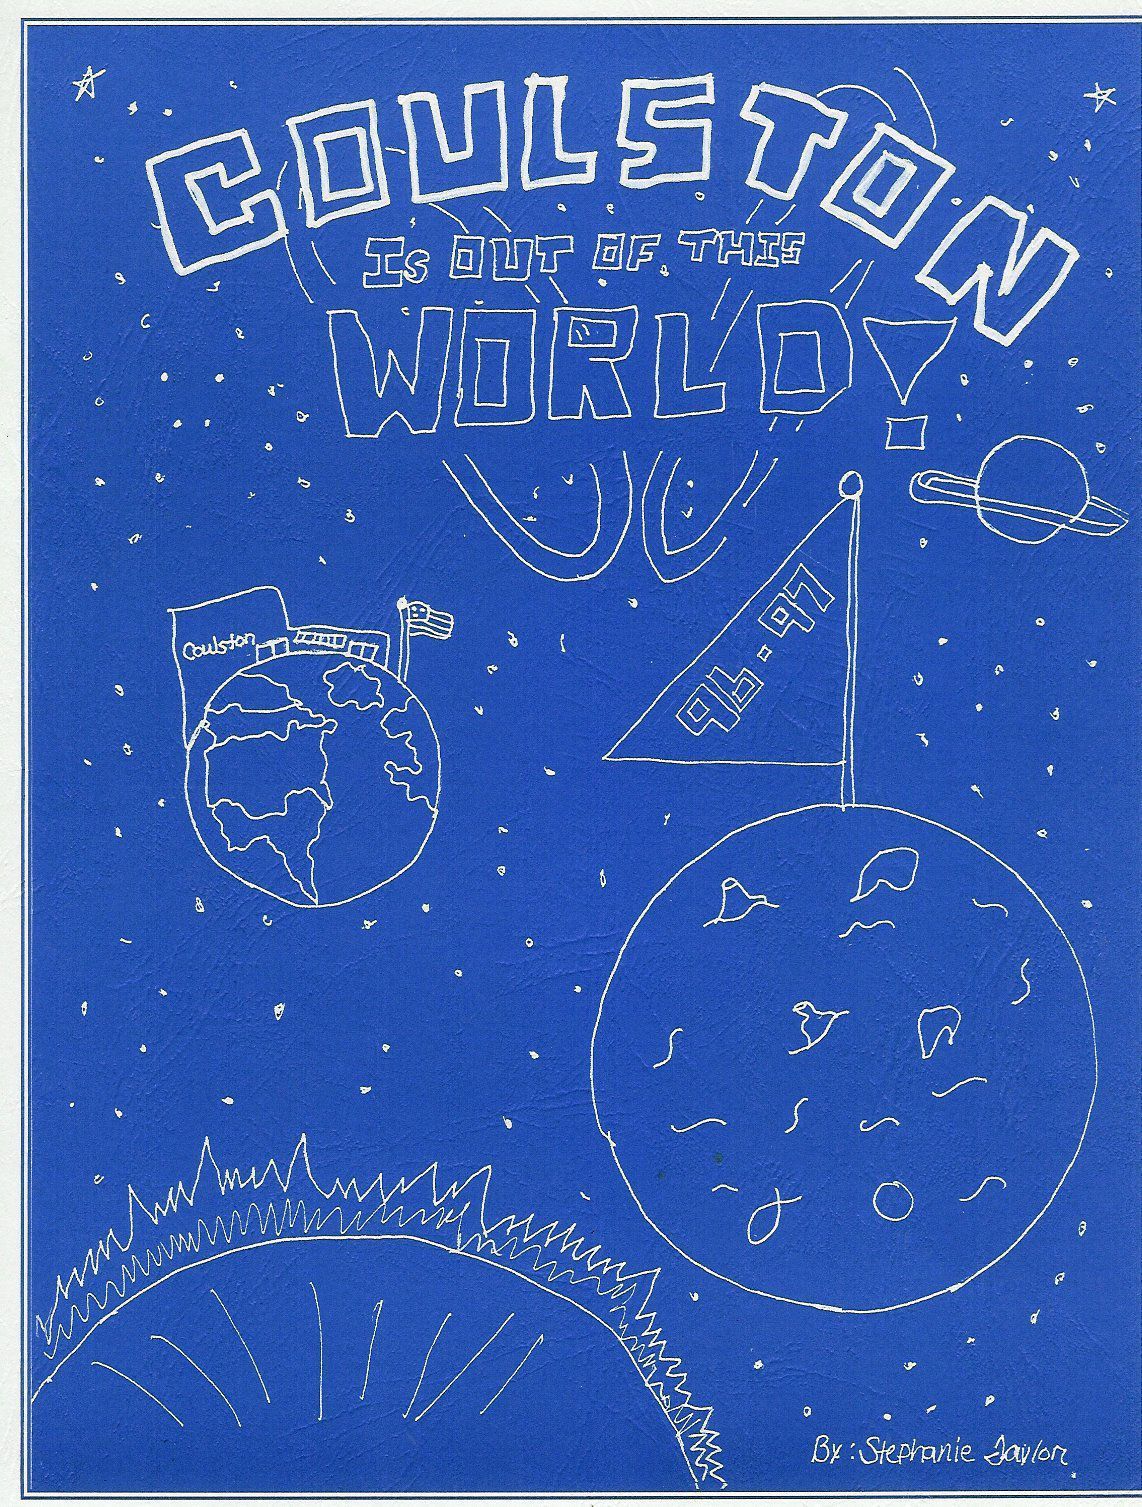 COULSTON
Is OUT OF THIS
WORLD!
Coulston
96-97
By: Stephanie Taylor